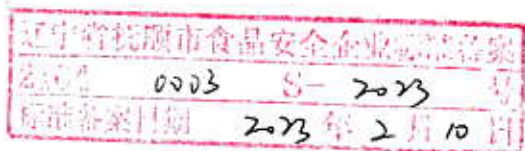 辽宁省抚顺市食品安全企业标准备案
0003 S- 2023 号
标准备案日期 2023 年 2 月 10 日